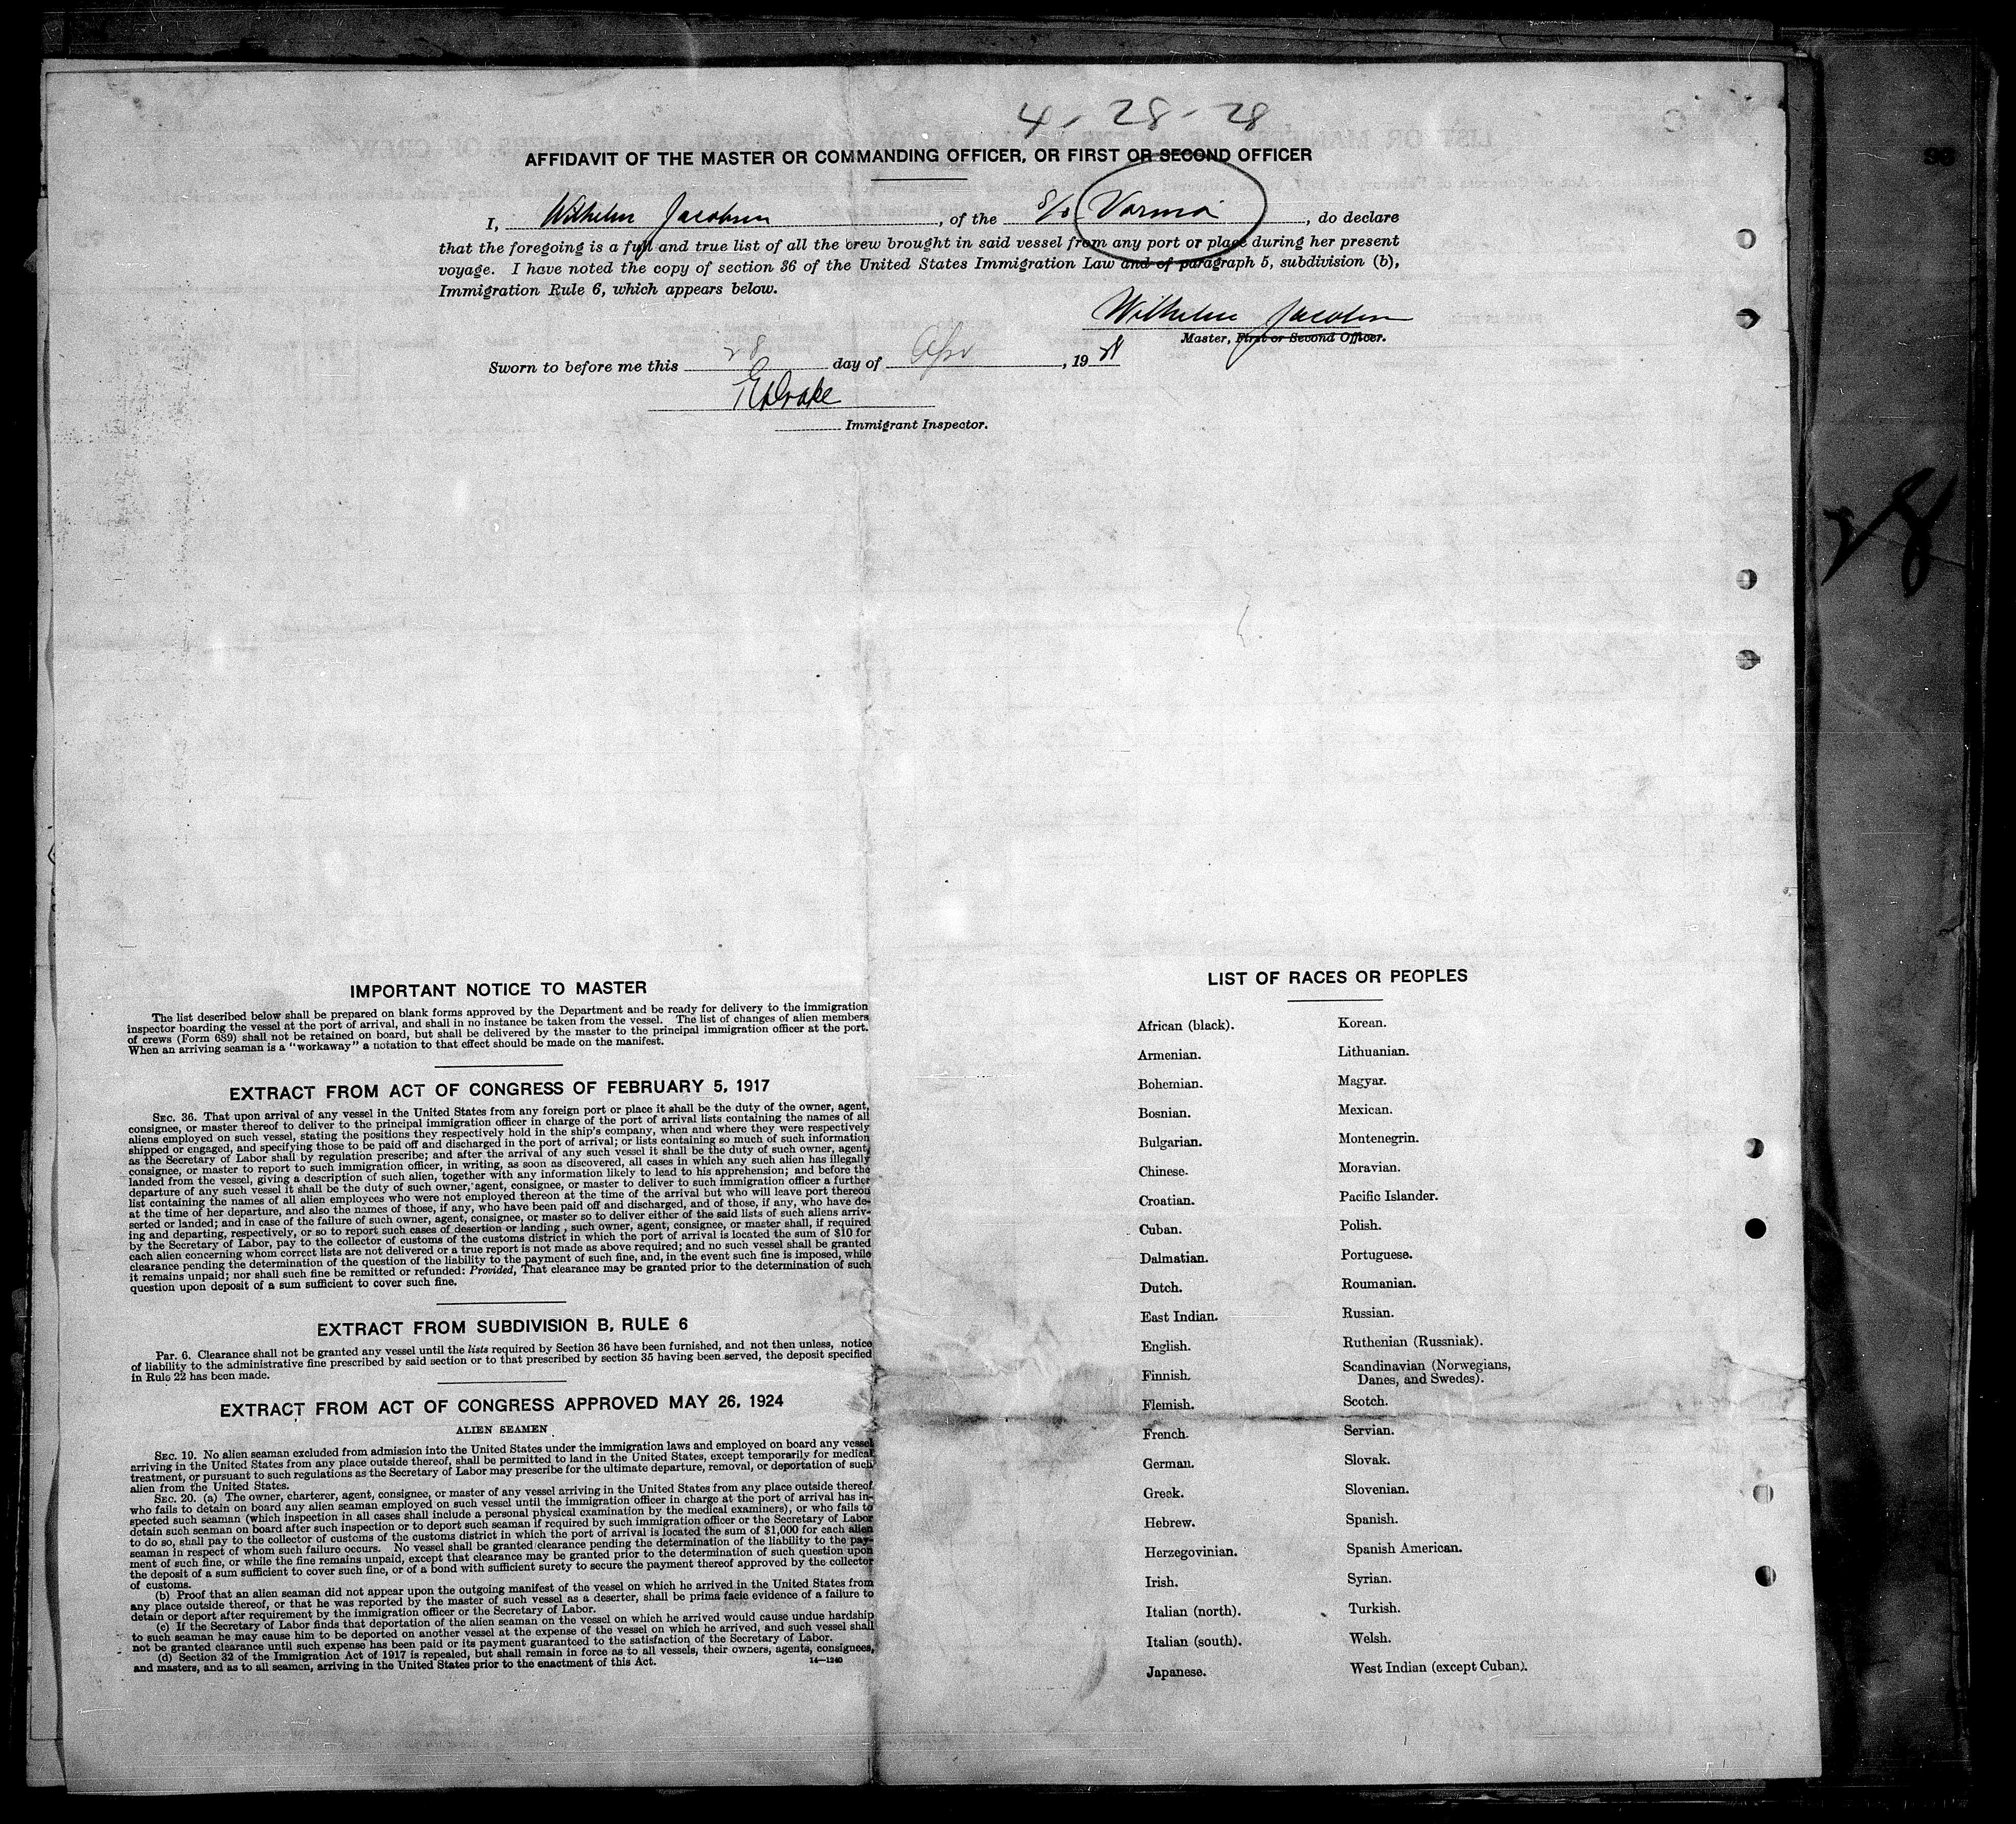 4-28-28
AFFIDAVIT OF THE MASTER OR COMMANDING OFFICER, OR FIRST OR SECOND OFFICER
I, Wilhelm Jacobsen, of the S/S Varmia, do declare
that the foregoing is a full and true list of all the crew brought in said vessel from any port or place during her present
voyage. I have noted the copy of section 36 of the United States Immigration Law and of paragraph 5, subdivision (b),
Immigration Rule 6, which appears below.
Wilhelm Jacobsen
Master, First or Second Officer.
Sworn to before me this 28 day of Apr, 1928
Drake
Immigrant Inspector.
28
IMPORTANT NOTICE TO MASTER
The list described below shall be prepared on blank forms approved by the Department and be ready for delivery to the immigration
inspector boarding the vessel at the port of arrival, and shall in no instance be taken from the vessel. The list of changes of alien members
of crews (Form 689) shall not be retained on board, but shall be delivered by the master to the principal immigration officer at the port.
When an arriving seaman is a "workaway" a notation to that effect should be made on the manifest.
EXTRACT FROM ACT OF CONGRESS OF FEBRUARY 5, 1917
SEC. 36. That upon arrival of any vessel in the United States from any foreign port or place it shall be the duty of the owner, agent,
consignee, or master thereof to deliver to the principal immigration officer in charge of the port of arrival lists containing the names of all
aliens employed on such vessel, stating the positions they respectively hold in the ship's company, when and where they were respectively
shipped or engaged, and specifying those to be paid off and discharged in the port of arrival; or lists containing so much of such information
as the Secretary of Labor shall by regulation prescribe; and after the arrival of any such vessel it shall be the duty of such owner, agent,
consignee, or master to report to such immigration officer, in writing, as soon as discovered, all cases in which any such alien has illegally
landed from the vessel, giving a description of such alien, together with any information likely to lead to his apprehension; and before the
departure of any such vessel it shall be the duty of such owner, agent, consignee, or master to deliver to such immigration officer a further
list containing the names of all alien employees who were not employed thereon at the time of the arrival but who will leave port thereon
at the time of her departure, and also the names of those, if any, who have been paid off and discharged, and of those, if any, who have de-
serted or landed; and in case of the failure of such owner, agent, consignee, or master so to deliver either of the said lists of such aliens arriv-
ing and departing, respectively, or so to report such cases of desertion or landing, such owner, agent, consignee, or master shall, if required
by the Secretary of Labor, pay to the collector of customs of the customs district in which the port of arrival is located the sum of $10 for
each alien concerning whom correct lists are not delivered or a true report is not made as above required; and no such vessel shall be granted
clearance pending the determination of the question of the liability to the payment of such fine, and, in the event such fine is imposed, while
it remains unpaid; nor shall such fine be remitted or refunded: Provided, That clearance may be granted prior to the determination of such
question upon deposit of a sum sufficient to cover such fine.
EXTRACT FROM SUBDIVISION B, RULE 6
Par. 6. Clearance shall not be granted any vessel until the lists required by Section 36 have been furnished, and not then unless, notice
of liability to the administrative fine prescribed by said section or to that prescribed by section 35 having been served, the deposit specified
in Rule 22 has been made.
EXTRACT FROM ACT OF CONGRESS APPROVED MAY 26, 1924
ALIEN SEAMEN
SEC. 19. No alien seaman excluded from admission into the United States under the immigration laws and employed on board any vessel
arriving in the United States from any place outside thereof, shall be permitted to land in the United States, except temporarily for medical
treatment, or pursuant to such regulations as the Secretary of Labor may prescribe for the ultimate departure, removal, or deportation of such
alien from the United States.
SEC. 20. (a) The owner, charterer, agent, consignee, or master of any vessel arriving in the United States from any place outside thereof
who fails to detain on board any alien seaman employed on such vessel until the immigration officer in charge at the port of arrival has in-
spected such seaman (which inspection in all cases shall include a personal physical examination by the medical examiners), or who fails to
detain such seaman on board after such inspection or to deport such seaman if required by such immigration officer or the Secretary of Labor
to do so, shall pay to the collector of customs of the customs district in which the port of arrival is located the sum of $1,000 for each alien
seaman in respect of whom such failure occurs. No vessel shall be granted clearance pending the determination of the liability to the pay-
ment of such fine, or while the fine remains unpaid, except that clearance may be granted prior to the determination of such question upon
the deposit of a sum sufficient to cover such fine, or of a bond with sufficient surety to secure the payment thereof approved by the collector
of customs.
(b) Proof that an alien seaman did not appear upon the outgoing manifest of the vessel on which he arrived in the United States from
any place outside thereof, or that he was reported by the master of such vessel as a deserter, shall be prima facie evidence of a failure to
detain or deport after requirement by the immigration officer or the Secretary of Labor.
(c) If the Secretary of Labor finds that deportation of the alien seaman on the vessel on which he arrived would cause undue hardship
to such seaman he may cause him to be deported on another vessel at the expense of the vessel on which he arrived, and such vessel shall
not be granted clearance until such expense has been paid or its payment guaranteed to the satisfaction of the Secretary of Labor.
(d) Section 32 of the Immigration Act of 1917 is repealed, but shall remain in force as to all vessels, their owners, agents, consignees,
and masters, and as to all seamen, arriving in the United States prior to the enactment of this Act.
14—1240
LIST OF RACES OR PEOPLES
African (black).
Armenian.
Bohemian.
Bosnian.
Bulgarian.
Chinese.
Croatian.
Cuban.
Dalmatian.
Dutch.
East Indian.
English.
Finnish.
Flemish.
French.
German.
Greek.
Hebrew.
Herzegovinian.
Irish.
Italian (north).
Italian (south).
Japanese.
Korean.
Lithuanian.
Magyar.
Mexican.
Montenegrin.
Moravian.
Pacific Islander.
Polish.
Portuguese.
Roumanian.
Russian.
Ruthenian (Russniak).
Scandinavian (Norwegians,
Danes, and Swedes).
Scotch.
Servian.
Slovak.
Slovenian.
Spanish.
Spanish American.
Syrian.
Turkish.
Welsh.
West Indian (except Cuban).